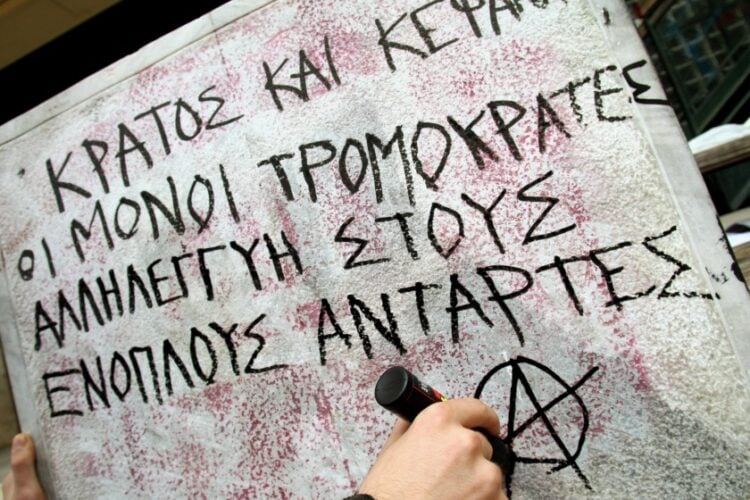 ΚΡΑΤΟΣ ΚΑΙ ΚΕΦΑΛ
ΟΙ ΜΟΝΟΙ ΤΡΟΜΟΚΡΑΤΕΣ
ΑΛΛΗΛΕΓΓΥΗ ΣΤΟΥΣ
ΕΝΟΠΛΟΥΣ ΑΝΤΑΡΤΕΣ
Ⓐ